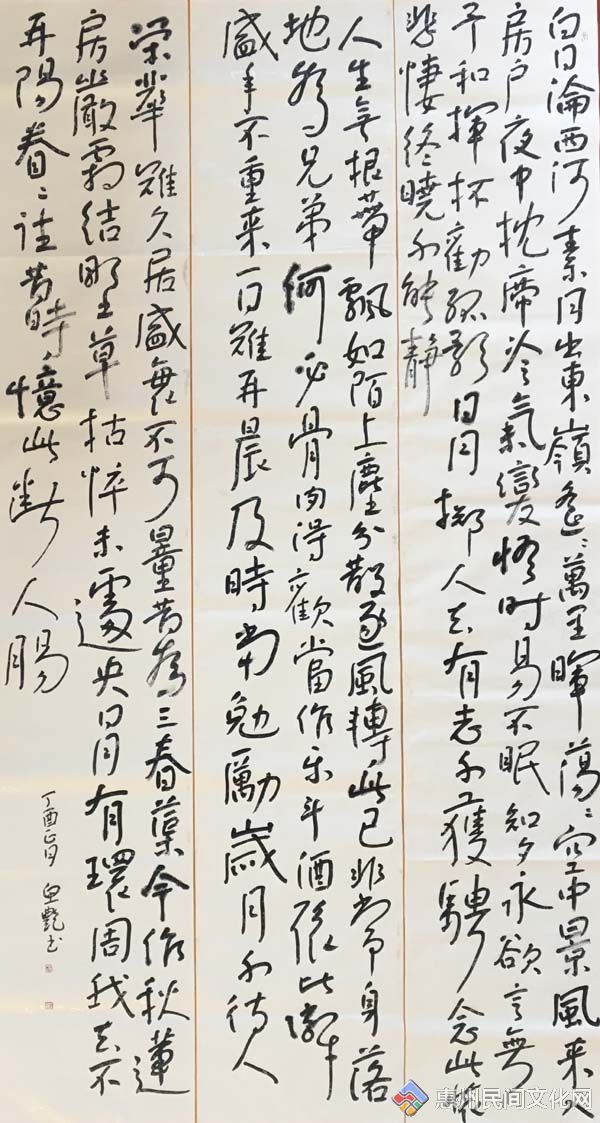 白日淪西河素月出東嶺遙〻萬里暉蕩〻空中景風来入
房户夜中枕席冷氣變悟时易不眠知夕永欲言無
予和揮杯勸孤影日月擲人去有志不獲騁念此懷
悲悽終曉不能靜
人生無根蒂飄如陌上塵分散逐風轉此已非常身落
地為兄弟何必骨肉得歡當作樂斗酒聚比鄰
盛年不重来一日難再晨及時當勉勵歲月不待人
榮華難久居盛衰不可量昔為三春蕖今作秋蓮
房嚴霜結野草枯悴未遽央日月有環周我去不
再陽眷〻往昔時憶此斷人腸
丁酉正月 艷书
惠州民间文化网